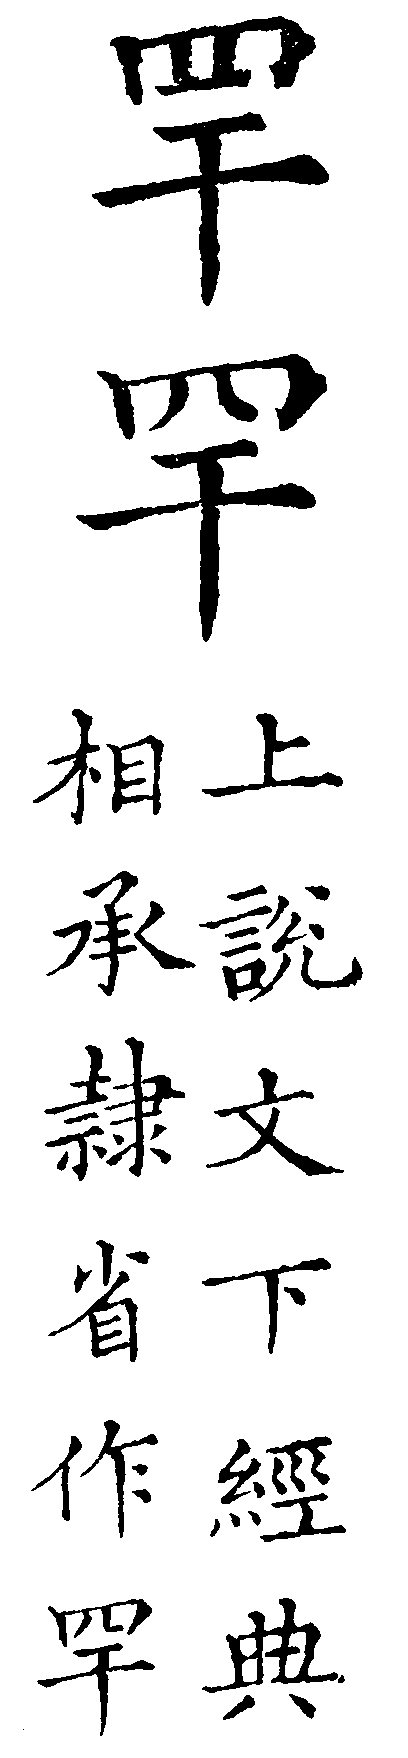 䍐
罕
上說文下經典
相承隸省作罕